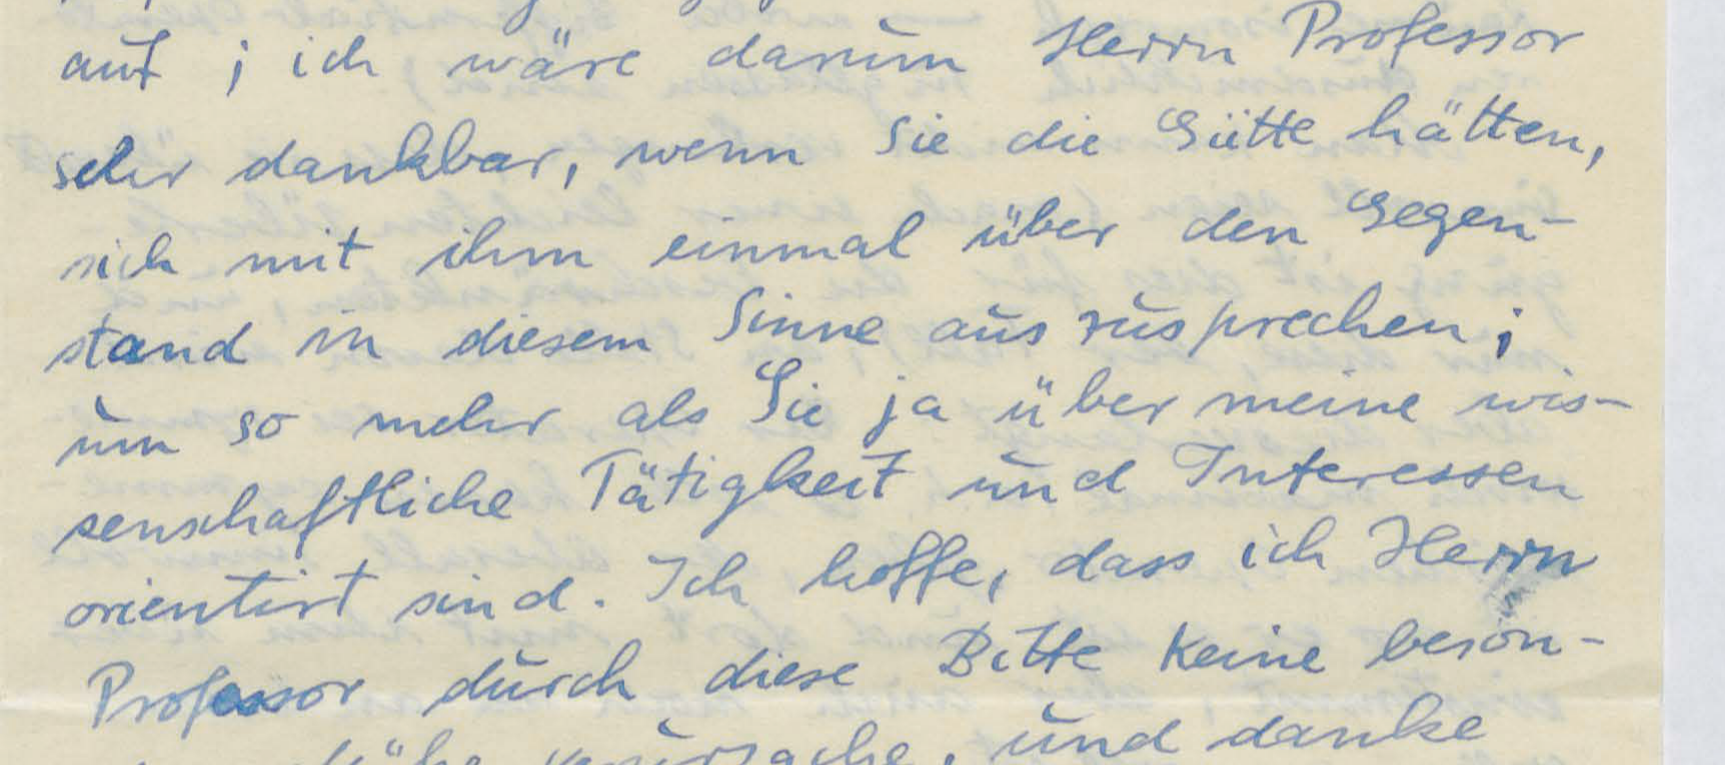 auf ; ich wäre darum Herrn Professor
sehr dankbar, wenn Sie die Gütte hätten,
sich mit ihm einmal über den Gegen-
stand in diesem Sinne auszusprechen ;
um so mehr als Sie ja über meine wis-
senschaftliche Tätigkeit und Interessen
orientirt sind. Ich hoffe, dass ich Herrn
Professor durch diese Bitte keine beson-
Mühe verursache, und danke